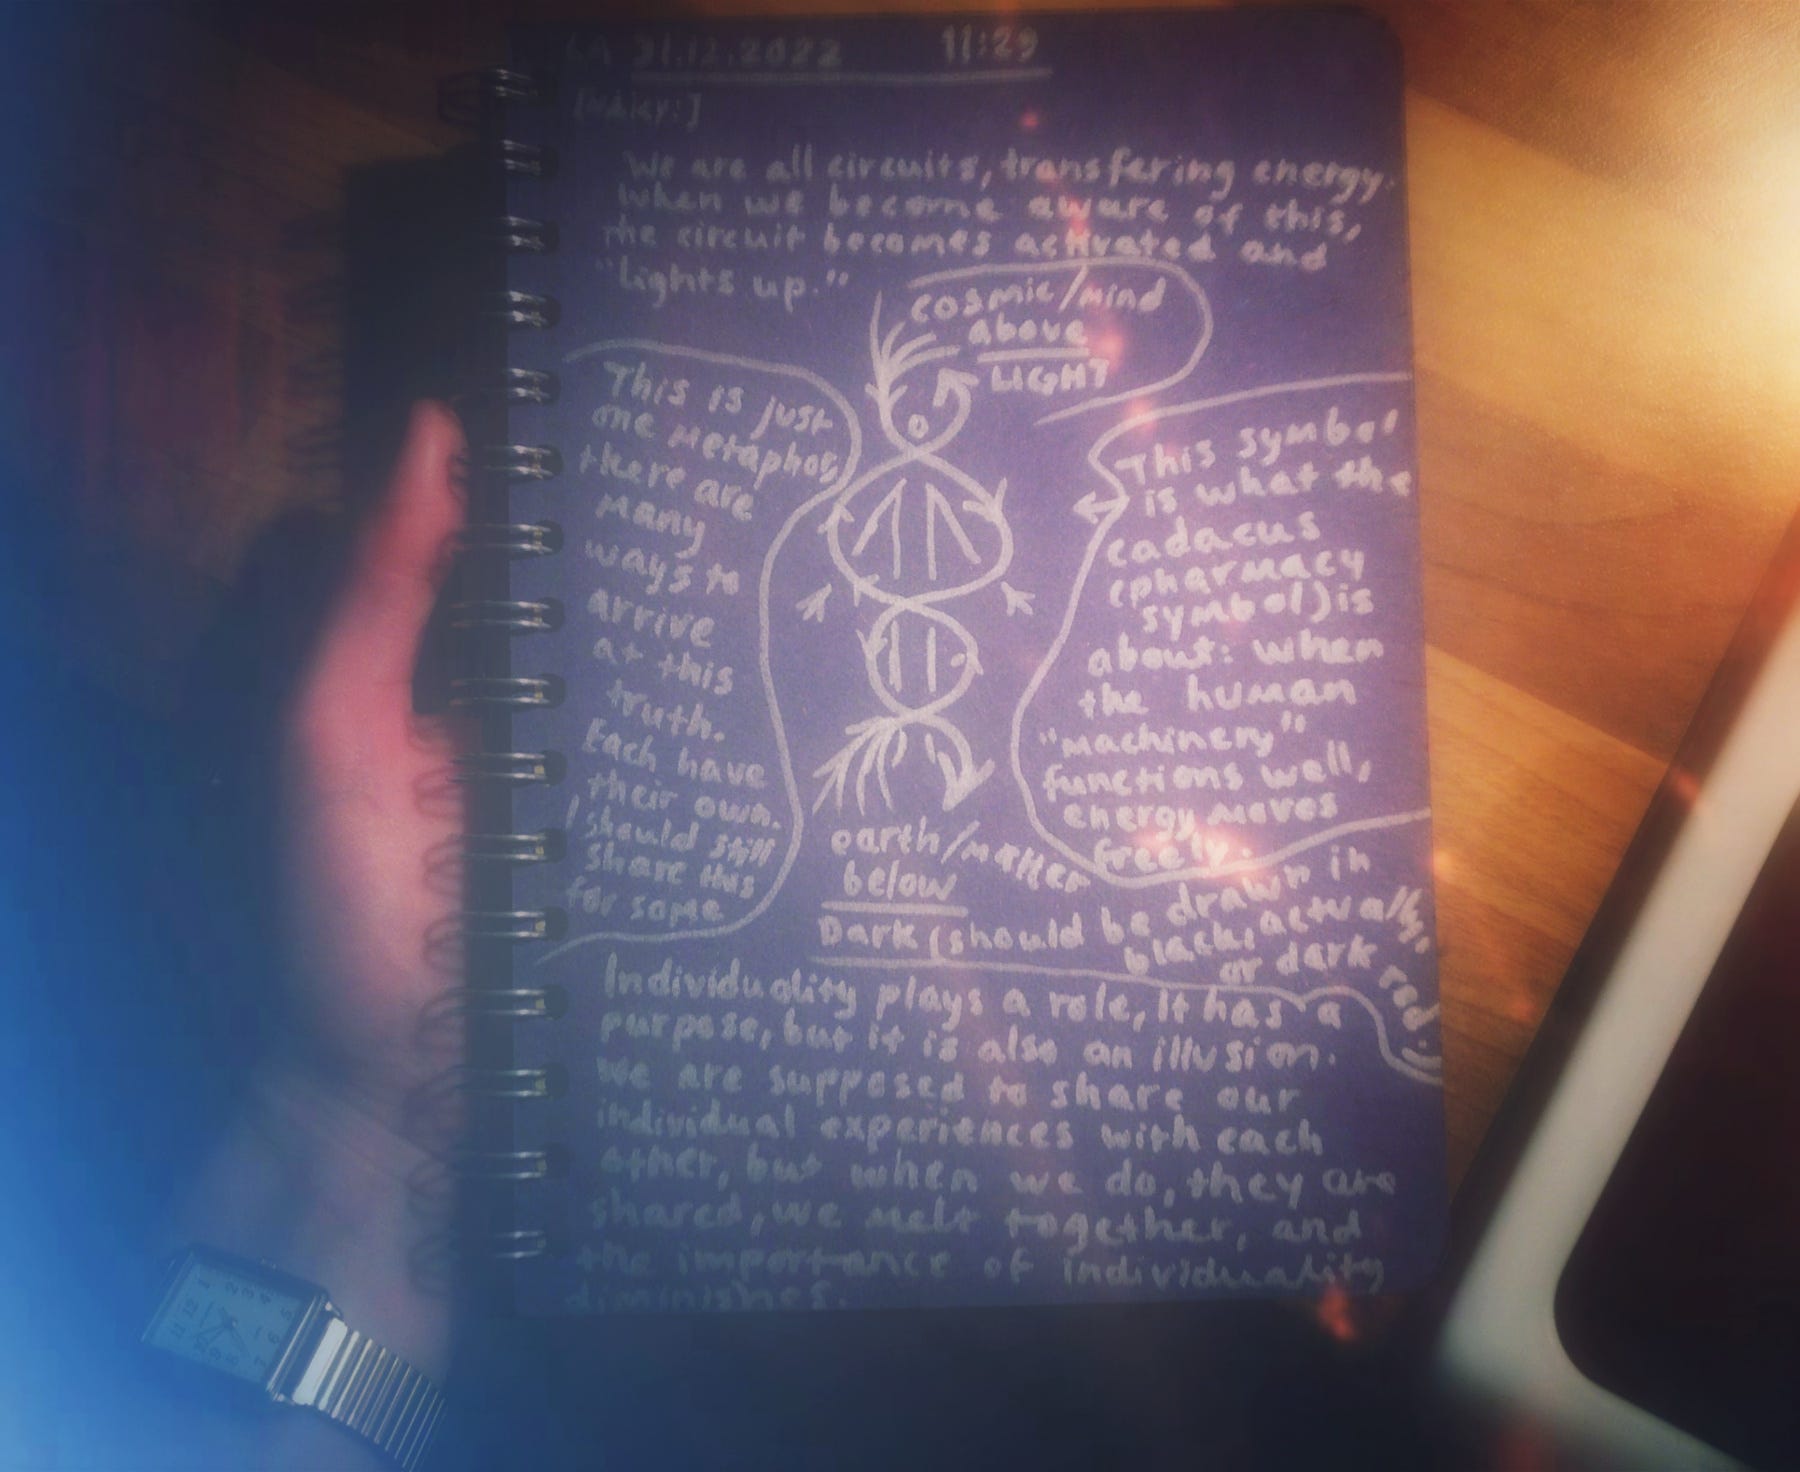 LA 31.12.2022 11:29
We are all circuits, transfering energy.
When we become aware of this,
the circuit becomes activated and
"lights up."
cosmic/mind
above
LIGHT
This is just
one metaphor,
there are
many
ways to
arrive
at this
truth.
Each have
their own.
I should still
share this
for some
This symbol
is what the
cadacus
(pharmacy
symbol) is
about: when
the human
"machinery"
functions well,
energy moves
freely.
earth/matter
below
Dark (should be drawn in
black, actually,
or dark red.)
Individuality plays a role, it has a
purpose, but it is also an illusion.
We are supposed to share our
individual experiences with each
other, but when we do, they are
shared, we melt together, and
the importance of individuality
diminishes.